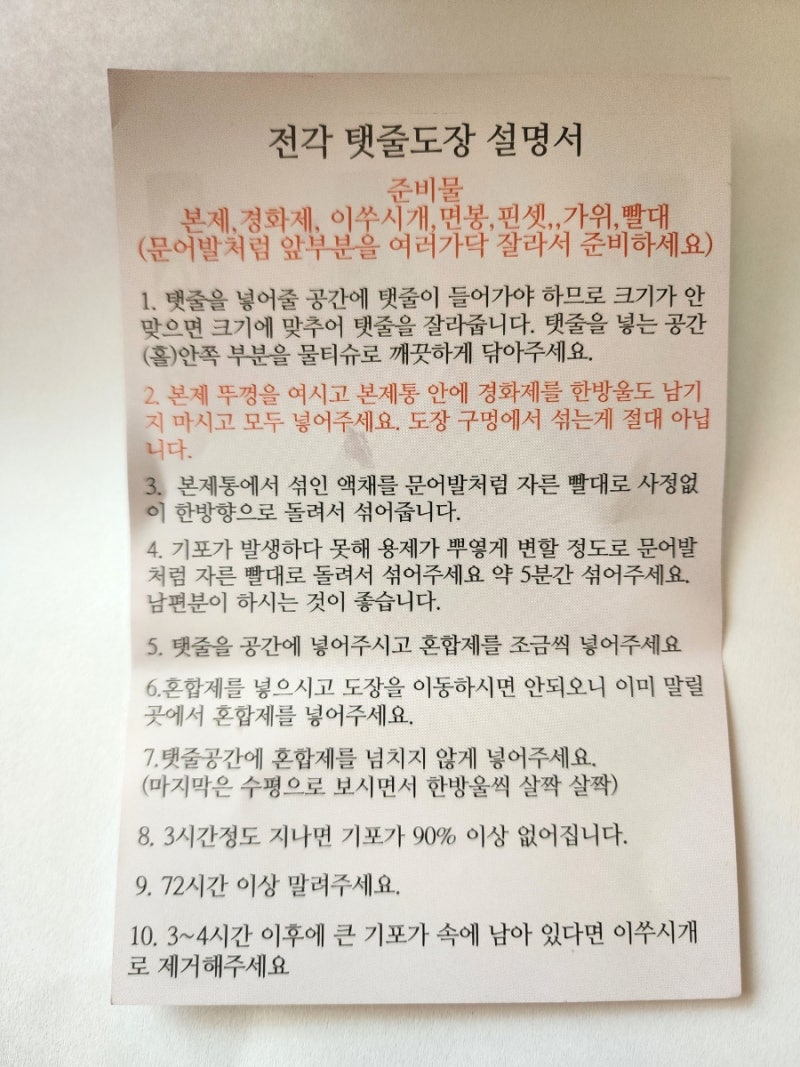 전각 탯줄도장 설명서
준비물
본제,경화제, 이쑤시개,면봉,핀셋,,가위,빨대
(문어발처럼 앞부분을 여러가닥 잘라서 준비하세요)
1. 탯줄을 넣어줄 공간에 탯줄이 들어가야 하므로 크기가 안
맞으면 크기에 맞추어 탯줄을 잘라줍니다. 탯줄을 넣는 공간
(홀)안쪽 부분을 물티슈로 깨끗하게 닦아주세요.
2. 본제 뚜껑을 여시고 본제통 안에 경화제를 한방울도 남기
지 마시고 모두 넣어주세요. 도장 구멍에서 섞는게 절대 아닙
니다.
3. 본제통에서 섞인 액채를 문어발처럼 자른 빨대로 사정없
이 한방향으로 돌려서 섞어줍니다.
4. 기포가 발생하다 못해 용제가 뿌옇게 변할 정도로 문어발
처럼 자른 빨대로 돌려서 섞어주세요 약 5분간 섞어주세요.
남편분이 하시는 것이 좋습니다.
5. 탯줄을 공간에 넣어주시고 혼합제를 조금씩 넣어주세요
6.혼합제를 넣으시고 도장을 이동하시면 안되오니 이미 말릴
곳에서 혼합제를 넣어주세요.
7.탯줄공간에 혼합제를 넘치지 않게 넣어주세요.
(마지막은 수평으로 보시면서 한방울씩 살짝 살짝)
8. 3시간정도 지나면 기포가 90% 이상 없어집니다.
9. 72시간 이상 말려주세요.
10. 3~4시간 이후에 큰 기포가 속에 남아 있다면 이쑤시개
로 제거해주세요